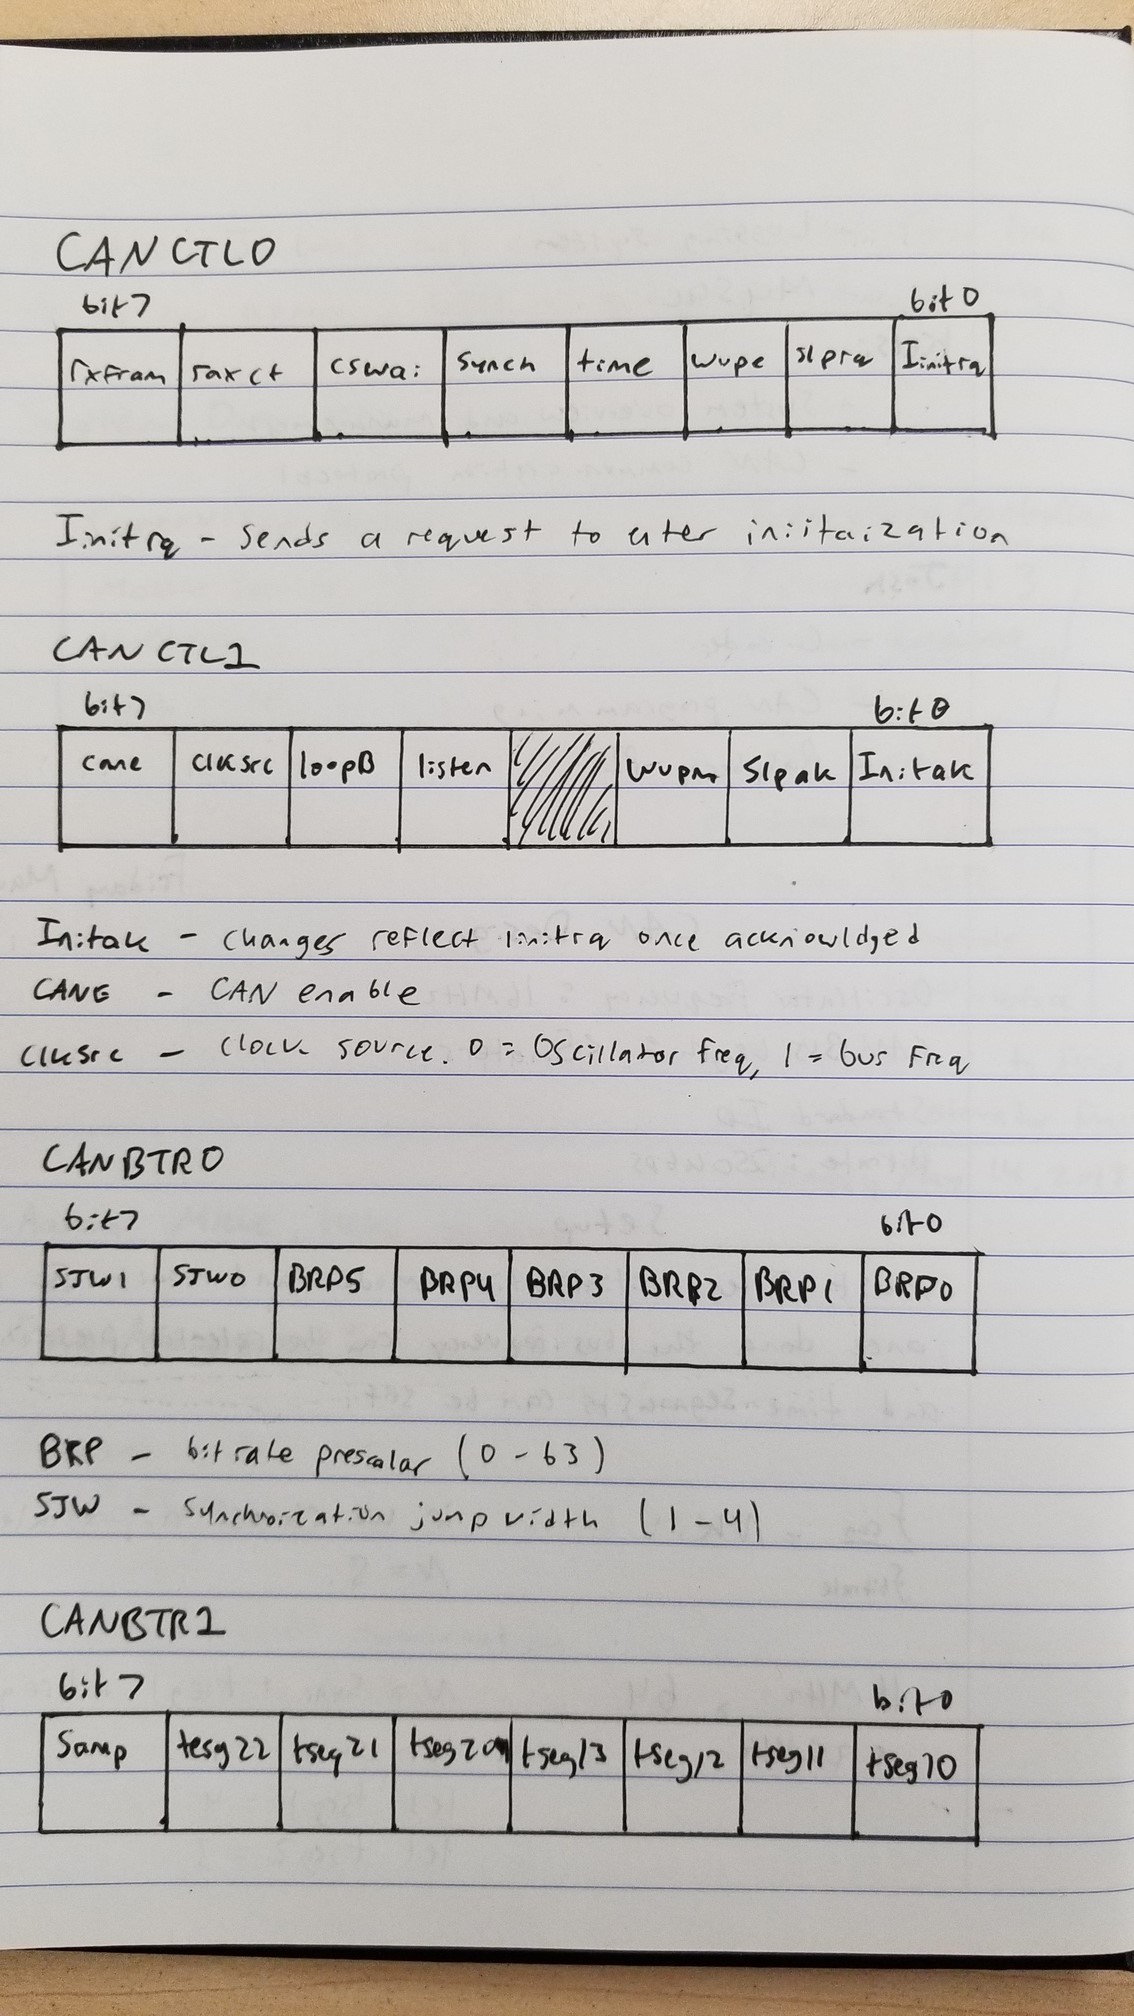 CANCTL0
bit7 bit0
rxfram raxct cswai synch time wupe slprq Iinitrq
Initrq - Sends a request to enter iniitaization
CANCTL1
bit7 bit0
cane clksrc loopB listen wupm Slpak Initak
Initak - changes reflect initrq once acknowldged
CANE - CAN enable
clksrc - clock source. 0 = Oscillator freq, 1 = bus Freq
CANBTR0
bit7 bit0
SJW1 SJW0 BRP5 BRP4 BRP3 BRP2 BRP1 BRP0
BRP - bitrate prescalar (0-63)
SJW - Synchroization jump width (1-4)
CANBTR1
bit7 bit0
Samp tesg22 tseg21 tseg20 tseg13 tseg12 tseg11 tseg10